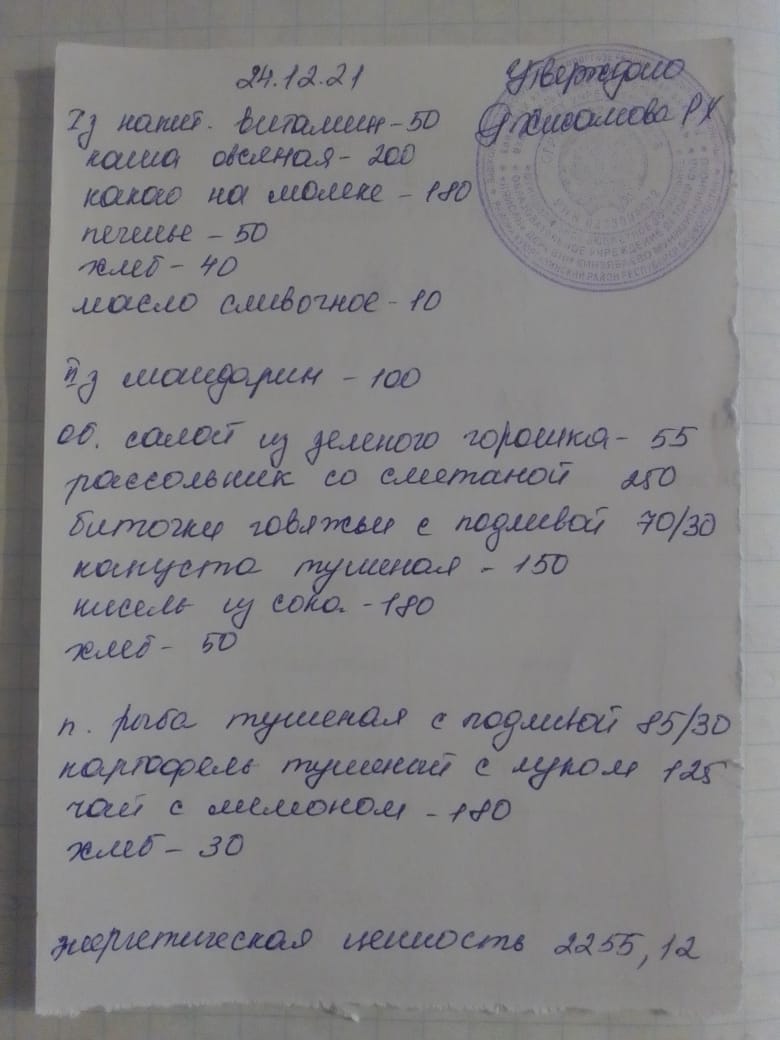 24.12.21
Утверждаю
Хисамова РХ
I з напит. витамин - 50
каша овсяная - 200
какао на молоке - 180
печенье - 50
хлеб - 40
масло сливочное - 10
II з мандарин - 100
об. салат из зеленого горошка - 55
рассольник со сметаной 250
биточки говяжьи с подливой 70/30
капуста тушеная - 150
кисель из сока - 180
хлеб - 50
п. рыба тушеная с подливой 85/30
картофель тушеный с луком 125
чай с лимоном - 180
хлеб - 30
энергетическая ценность 2255,12